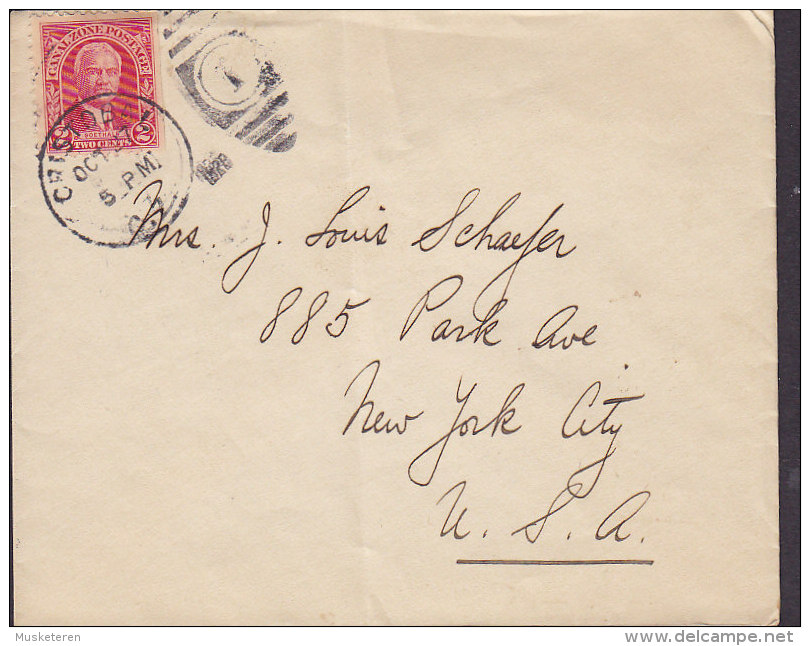 CANAL ZONE POSTAGE
GOETHALS
2 TWO CENTS 2
CRISTOBAL
OCT
5 PM
C.Z.
Mrs. J. Louis Schaefer
885 Park Ave
New York City
U. S. A.
Musketeren
www.delcampe.net